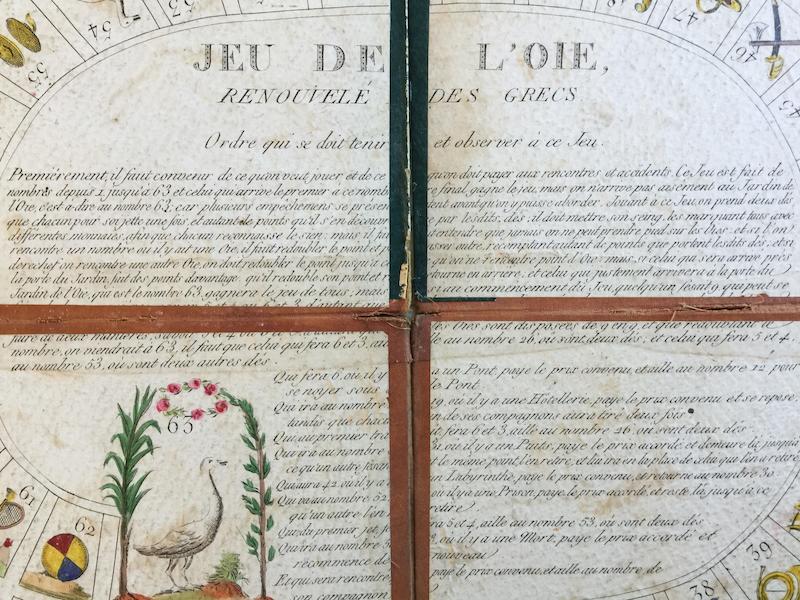 JEU DE L'OIE,
RENOUVELÉ DES GRECS
Ordre qui se doit tenir et observer à ce Jeu.
Premièrement, il faut convenir de ce qu'on veut jouer et de ce qu'on doit payer aux rencontres et accidents. Ce Jeu est fait de
nombres depuis 1, jusqu'à 63, et celui qui arrive le premier à ce nombre final, gagne le jeu, mais on n'arrive pas aisément au Jardin de
l'Oie, c'est à dire au nombre 63, car plusieurs empêchemens se présen tent avant qu'on y puisse aborder. Jouant à ce Jeu, on prend deux dés
que chacun pour soi jette une fois, et autant de points qu'il s'en découvre par lesdits dés; il doit mettre son seing, les marquant tous avec
différentes monnaies, afin que chacun reconnaisse le sien; mais il faut entendre que jamais on ne peut prendre pied sur les Oies, et si l'on
rencontre un nombre où il y ait une Oie, il faut redoubler le point et passer outre, recomptant autant de points que portent lesdits dés, et si
derechef on rencontre une autre Oie, on doit redoubler le point jusqu'à ce qu'on ne rencontre point d'Oie: mais, si celui qui sera arrivé près
la porte du Jardin, fait des points d'avantage, qu'il redouble son point et retourne en arrière, et celui qui justement arrivera à la porte du
Jardin de l'Oie, qui est le nombre 63, gagnera le jeu de tous, mais si au commencement du Jeu, quelqu'un fesait 9, qui peut se
faire de deux manières,
Oies sont disposées de 9 en 9, et que redoublant le
nombre, on viendrait à 63, il faut que celui qui fera 6 et 3, aille au nombre 26, où sont deux dés; et celui qui fera 5 et 4,
au nombre 53, où sont deux autres dés.
Qui fera 6, où il y a un Pont, paye le prix convenu, et aille au nombre 12 pour
se noyer sous le Pont.
Qui ira au nombre 19, où il y a une Hôtellerie, paye le prix convenu et se repose,
tandis que chacun de ses compagnons aura tiré deux fois
Qui, au premier trait, fera 6 et 3, aille au nombre 26, où sont deux dés.
Qui ira au nombre 31, où il y a un Puits, paye le prix accordé et demeure là, jusqu'à
ce qu'un autre, fesant le même point, l'en retire, et lui ira en la place de celui qui l'en a retiré
Qui aura 42, où il y a un Labyrinthe, paye le prix convenu, et retourne au nombre 30
Qui va au nombre 52, où il y a une Prison, paye le prix accordé, et reste là, jusqu'à ce
qu'un autre l'en retire
Qui, du premier jet, fera 5 et 4, aille au nombre 53, où sont deux dés
Qui ira au nombre 58, où il y a une Mort, paye le prix accordé et
recommence de nouveau
Et qui sera rencontré, paye le prix convenu, et aille au nombre de
son compagnon
63
54
53
55
48
47
46
45
61
62
39
38